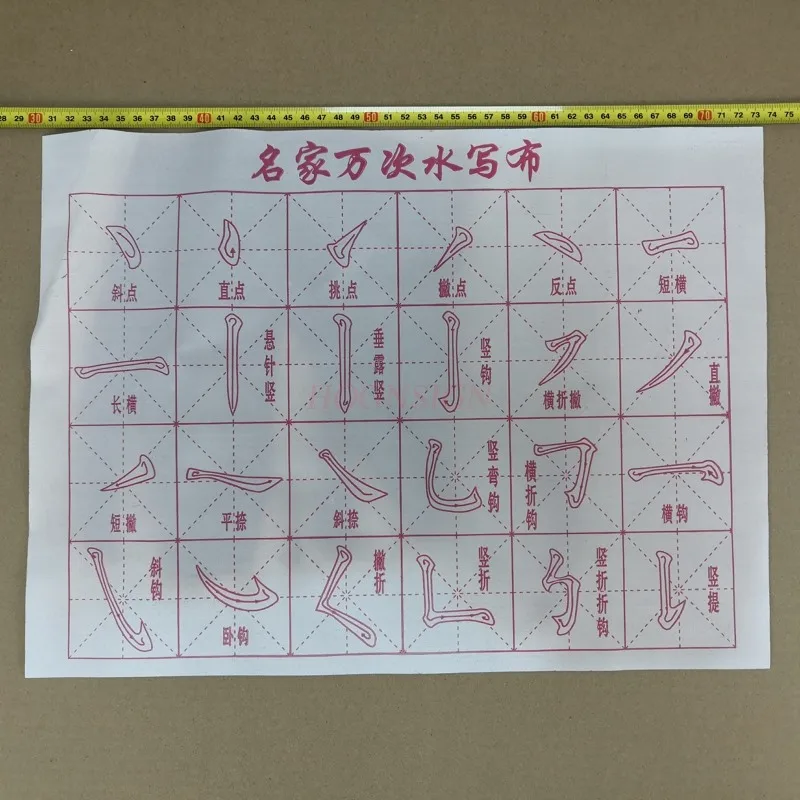 28 29 30 31 32 33 34 35 36 37 38 39 40 41 42 43 44 45 46 47 48 49 50 51 52 53 54 55 56 57 58 59 60 61 62 63 64 65 66 67 68 69 70 71 72 73 74 75
名家万次水写布
斜点 直点 挑点 撇点 反点 短横
长横 悬针竖 垂露竖 竖钩 横折撇 直撇
短撇 平捺 斜捺 竖弯钩 横折钩 横钩
斜钩 卧钩 撇折 竖折 竖折折钩 竖提